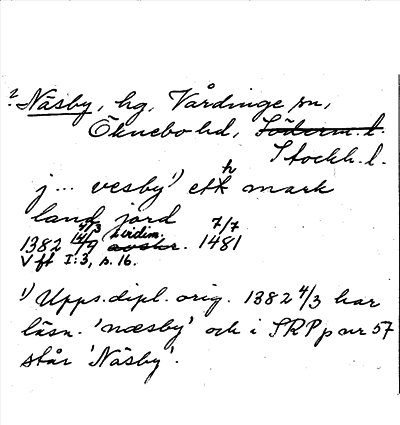 ? Näsby, hg, Vårdinge sn,
Öknebo hd, Söderm. l.
Stockh. l.
j... vesby¹) eth mark
land jord
1382 4/3 14/9 i vidim. avskr. 7/7 1481
Vff I:3, s. 16.
¹) Upps. dipl. orig. 1382 4/3 har
läsn. 'næsby' och i SRPp nr 57
står 'Näsby'.